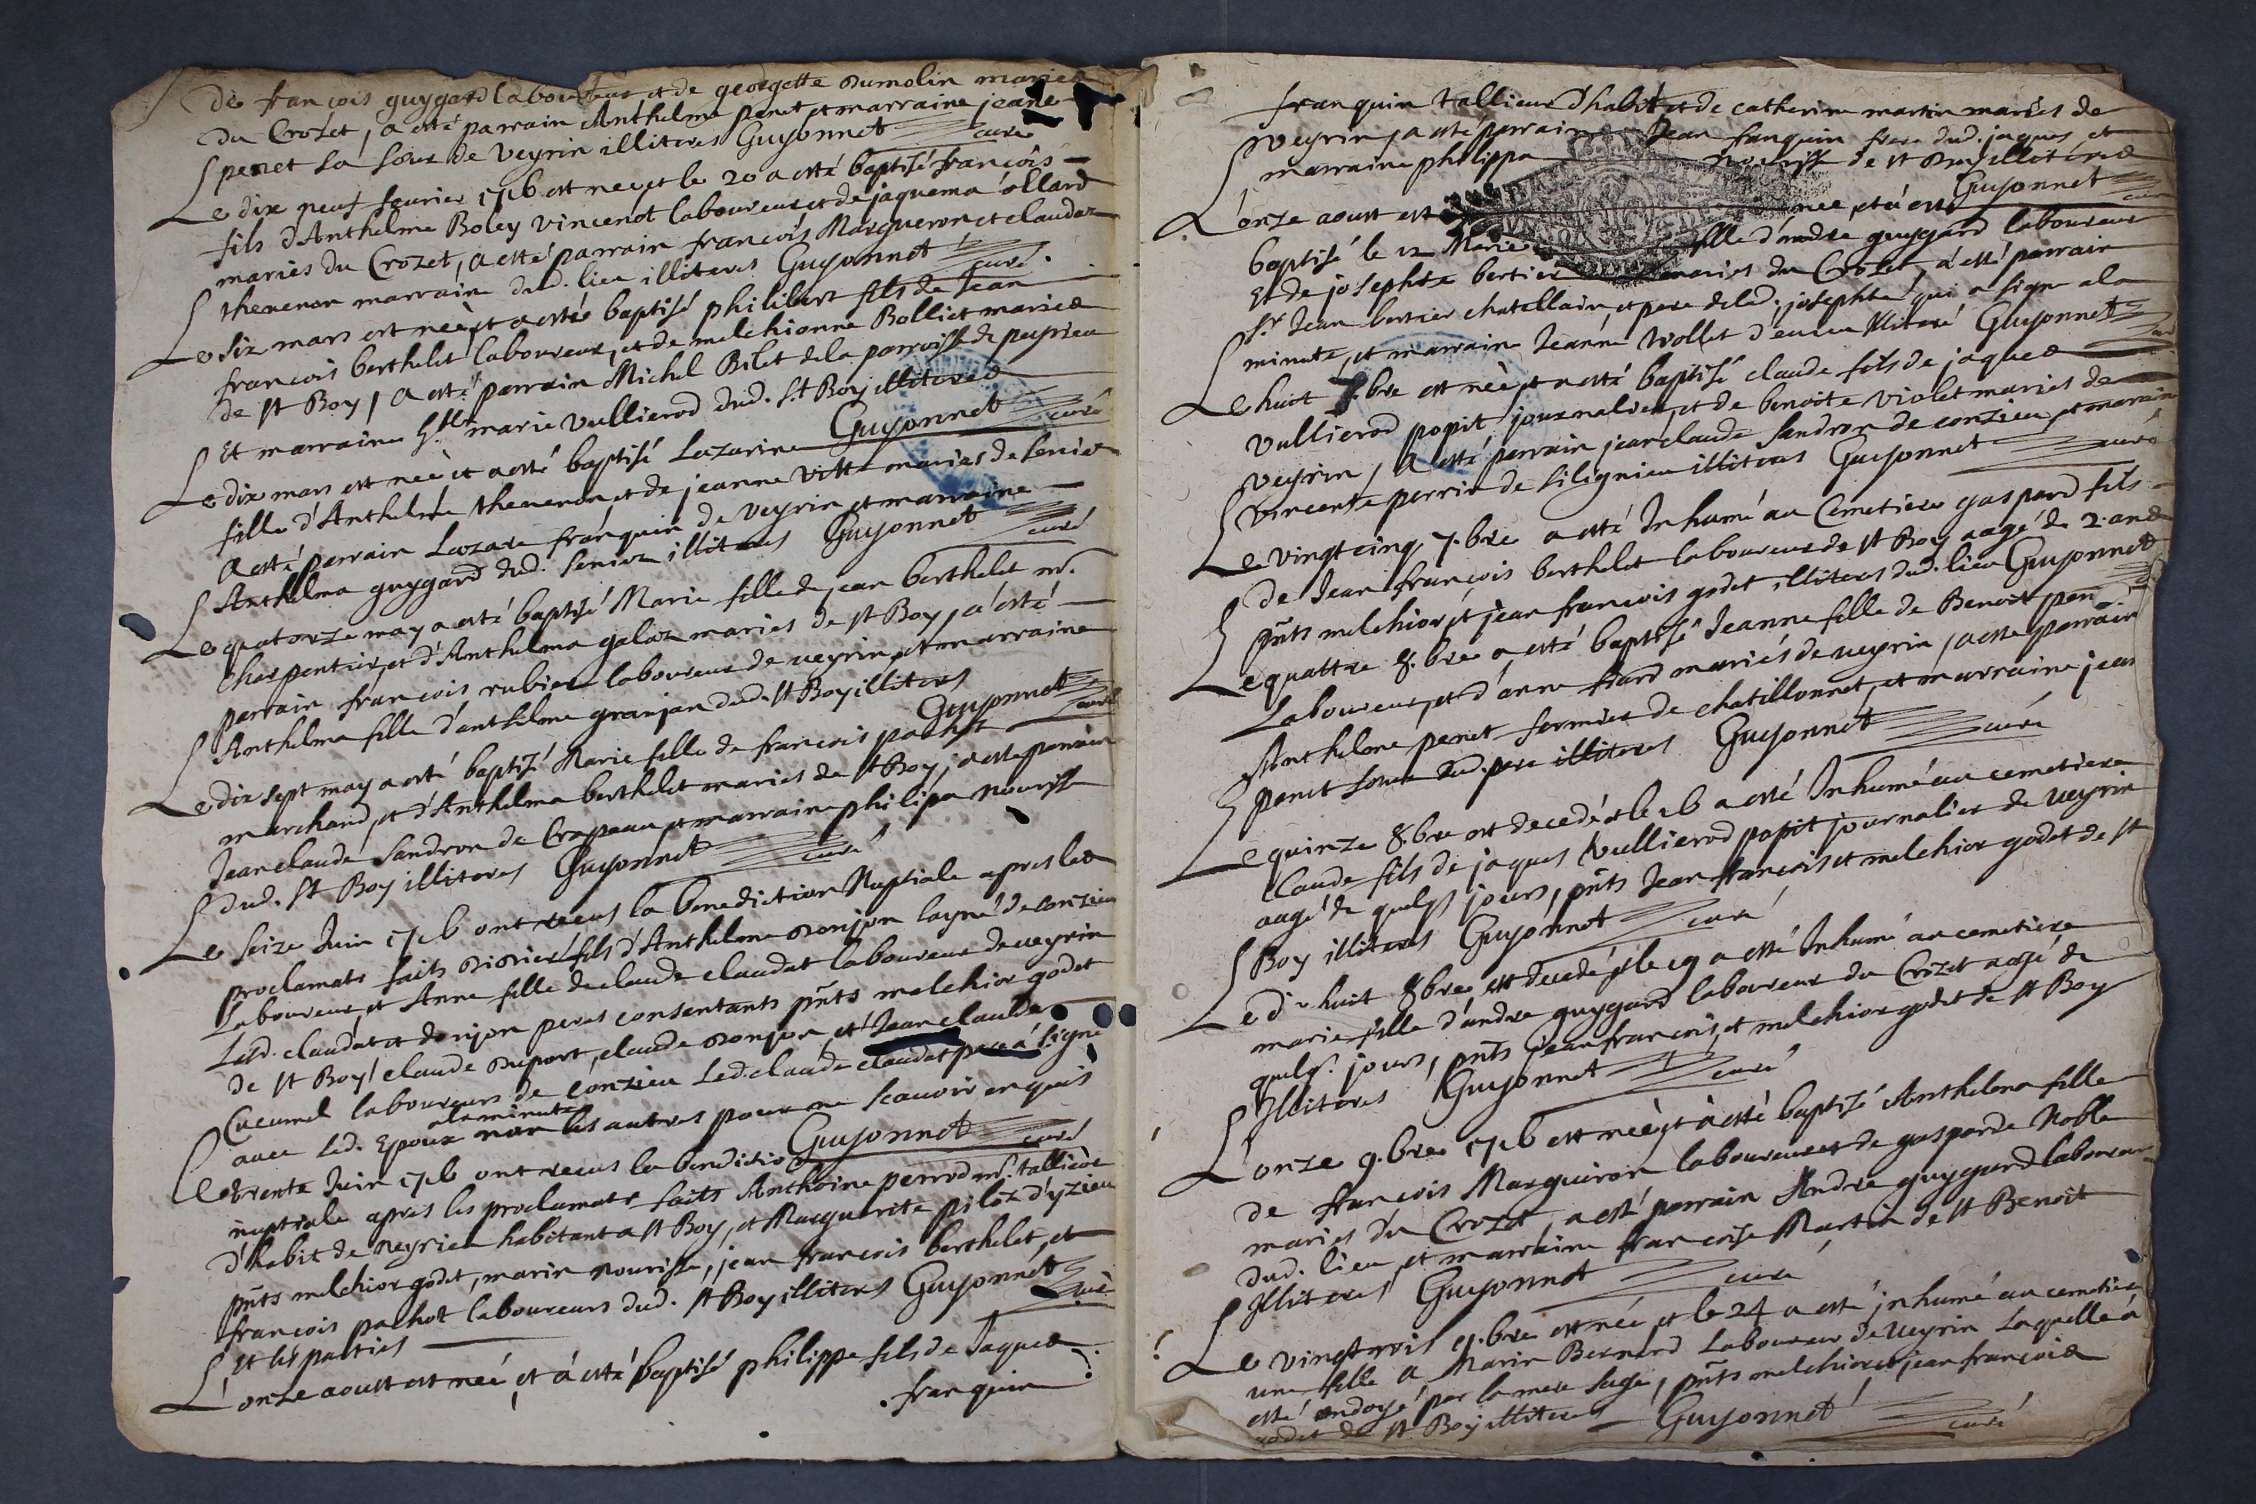 de françois guygard laboureur et de georgette dumolin mariés
du Crozet, a esté parrain Anthelme penet et marraine jeane
penet sa soeur de veyrin illiteres Guyonnet curé
Le dix neuf feurier 1716 est nee et le 20 a esté baptisé françois
fils d'Anthelme Boley vincenot laboureur et de jaquema ollard
mariés du Crozet, a esté parrain françois Marqueron et claudaz
thevenon marraine dud. lieu illiteres Guyonnet curé.
Le six mars est neé et a esté baptisé philibert fils de Jean
françois berthelet laboureur, et de melchionne Bolliet mariés
de st Boy, a esté parrain Michel Bilet de la parroisse de peyrieu
Et marraine h.lle marie vullierod dud. St Boy illiteres
Guyonnet curé
Le dix mars est neé et a esté baptisé Lazarine
fille d'Anthelme thevenon, et de jeanne vitte mariés de senioz
a esté parrain Lazare franquin de veyrin et marraine
Anthelma guygard dud. senioz illiteres Guyonnet curé
Le quatorze may a esté baptisé Marie fille de jean berthelet m.e
charpentier, et d'Anthelma galoz mariés de st Boy, a esté
parrain françois rubier laboureur de veyrin, et marraine
Anthelma fille d'anthelme granjan dud. St Boy illiteres
Guyonnet curé
Le dix sept may a esté baptisé Marie fille de françois pachot
marchand, et d'Anthelma berthelet mariés de st Boy, a esté parrain
Jean claude sandron de Crapeau, et marraine philipa nourisse
dud. St Boy illiteres Guyonnet curé
Le seize Juin 1716 ont receus la benediction Nuptiale apres les
proclamats faits didier fils d'Anthelme donjon layné de conzieu
Laboureur, et Anne fille de claude claudat laboureur de veyrin
Lesd. claudat et donjon peres consentants pnts melchior godet
de st Boy, claude duport, claude donjon, et Jean claude
Cucumel laboureurs de conzieu Led. claude claudat pere a signé
a la minute
avec led. Epoux non les autres pour ne scavoir enquis
Guyonnet curé
Le trente Juin 1716 ont receus la benediction
nuptiale apres les proclamats faits Anthoine perrod m.e tallieur
d'habit de peyrieu habitant a st Boy, et Marguerite piloz d'yzieu
pnts melchior godet, marin nourisse, jean françois berthelet, et
françois pachot laboureurs dud. st Boy illiteres Guyonnet curé
Et les parties
L'onze aoust est neé, et a esté baptisé philippe fils de Jaques
franquin
franquin tallieur d'habit et de catherine martin mariés de
veyrin, a esté parrain Jean franquin frere dud. jaques et
marraine philippa nourisse de st Boy illiteres
Guyonnet
L'onze aoust est née, et a esté
baptisé le 12 Marie fille d'andre guygard laboureur
Et de josephte bertier mariés du Crozet, a esté parrain
S.r Jean bertier chatellain, et pere de lad. josephte qui a signe a la
minute, et marraine Jeanne vollet d'eulieu illiteré Guyonnet curé
Le huit 7.bre est neé et a esté baptisé claude fils de jaques
vullierod popit journalier, et de benoite violet mariés de
veyrin, a esté parrain jean claude sandron de conzieu, et marraine
vincente perrin de silignieu illiteres Guyonnet curé
Le vingt cinq 7.bre a esté Inhumé au Cemetiere gaspard fils
de Jean françois berthelet laboureur de st Boy aagé de 2. ans
pnts melchior, et jean françois godet illiteres dud. lieu Guyonnet
Le quattre 8.bre a esté baptisé Jeanne fille de Benoit pen
Laboureur, et d'anne frard mariés de veyrin, a esté parrain
Anthelme penet fermier de chatillonnet, et marraine jean
penet soeur dud. pere illiteres Guyonnet curé
Le quinze 8.bre est decedé et le 16 a esté Inhumé au cemetiere
Claude fils de jaques vullierod popit journalier de veyrin
aagé de quelqs jours, pnts Jean françois et melchior godet de st
Boy illiteres Guyonnet curé
Le dix huit 8bre est decedé et le 19 a esté Inhumé au cemetiere
marie fille d'andre guygard laboureur du Crozet aagé de
quelq. jours, pnts jean françois, et melchior godet de st Boy
Illiteres Guyonnet curé
L'onze 9.bre 1716 est neé et a esté baptisé Anthelma fille
de françois Marquiron laboureur et de gasparde Noble
mariés du Crozet, a esté parrain Andre guygard laboureur
dud. lieu, et marraine françoise Martin de st Benoit
Illiteres Guyonnet curé
Le vingt trois 9.bre est née et le 24 a esté inhumé au cemetiere
une fille a Marin Bernard Laboureur de veyrin Laquelle a
esté ondoyé par la mere sage, pnts melchior et jean françois
godet de st Boy illiteres Guyonnet curé